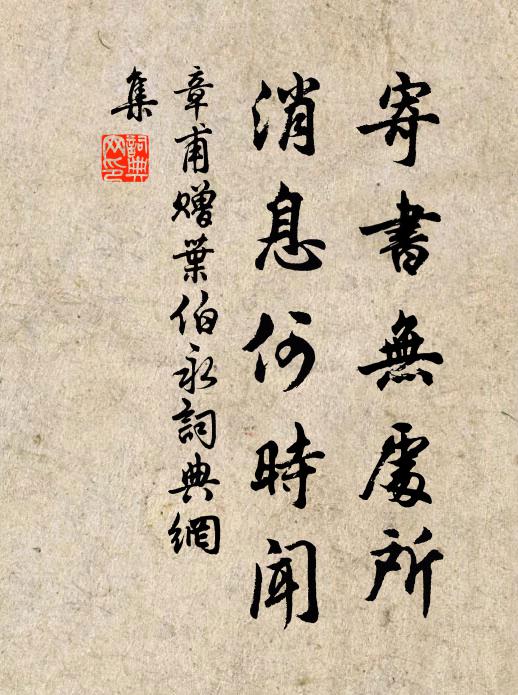 寄書無處所
消息何時聞
章甫贈葉伯永詞典網
集
詞典
网印